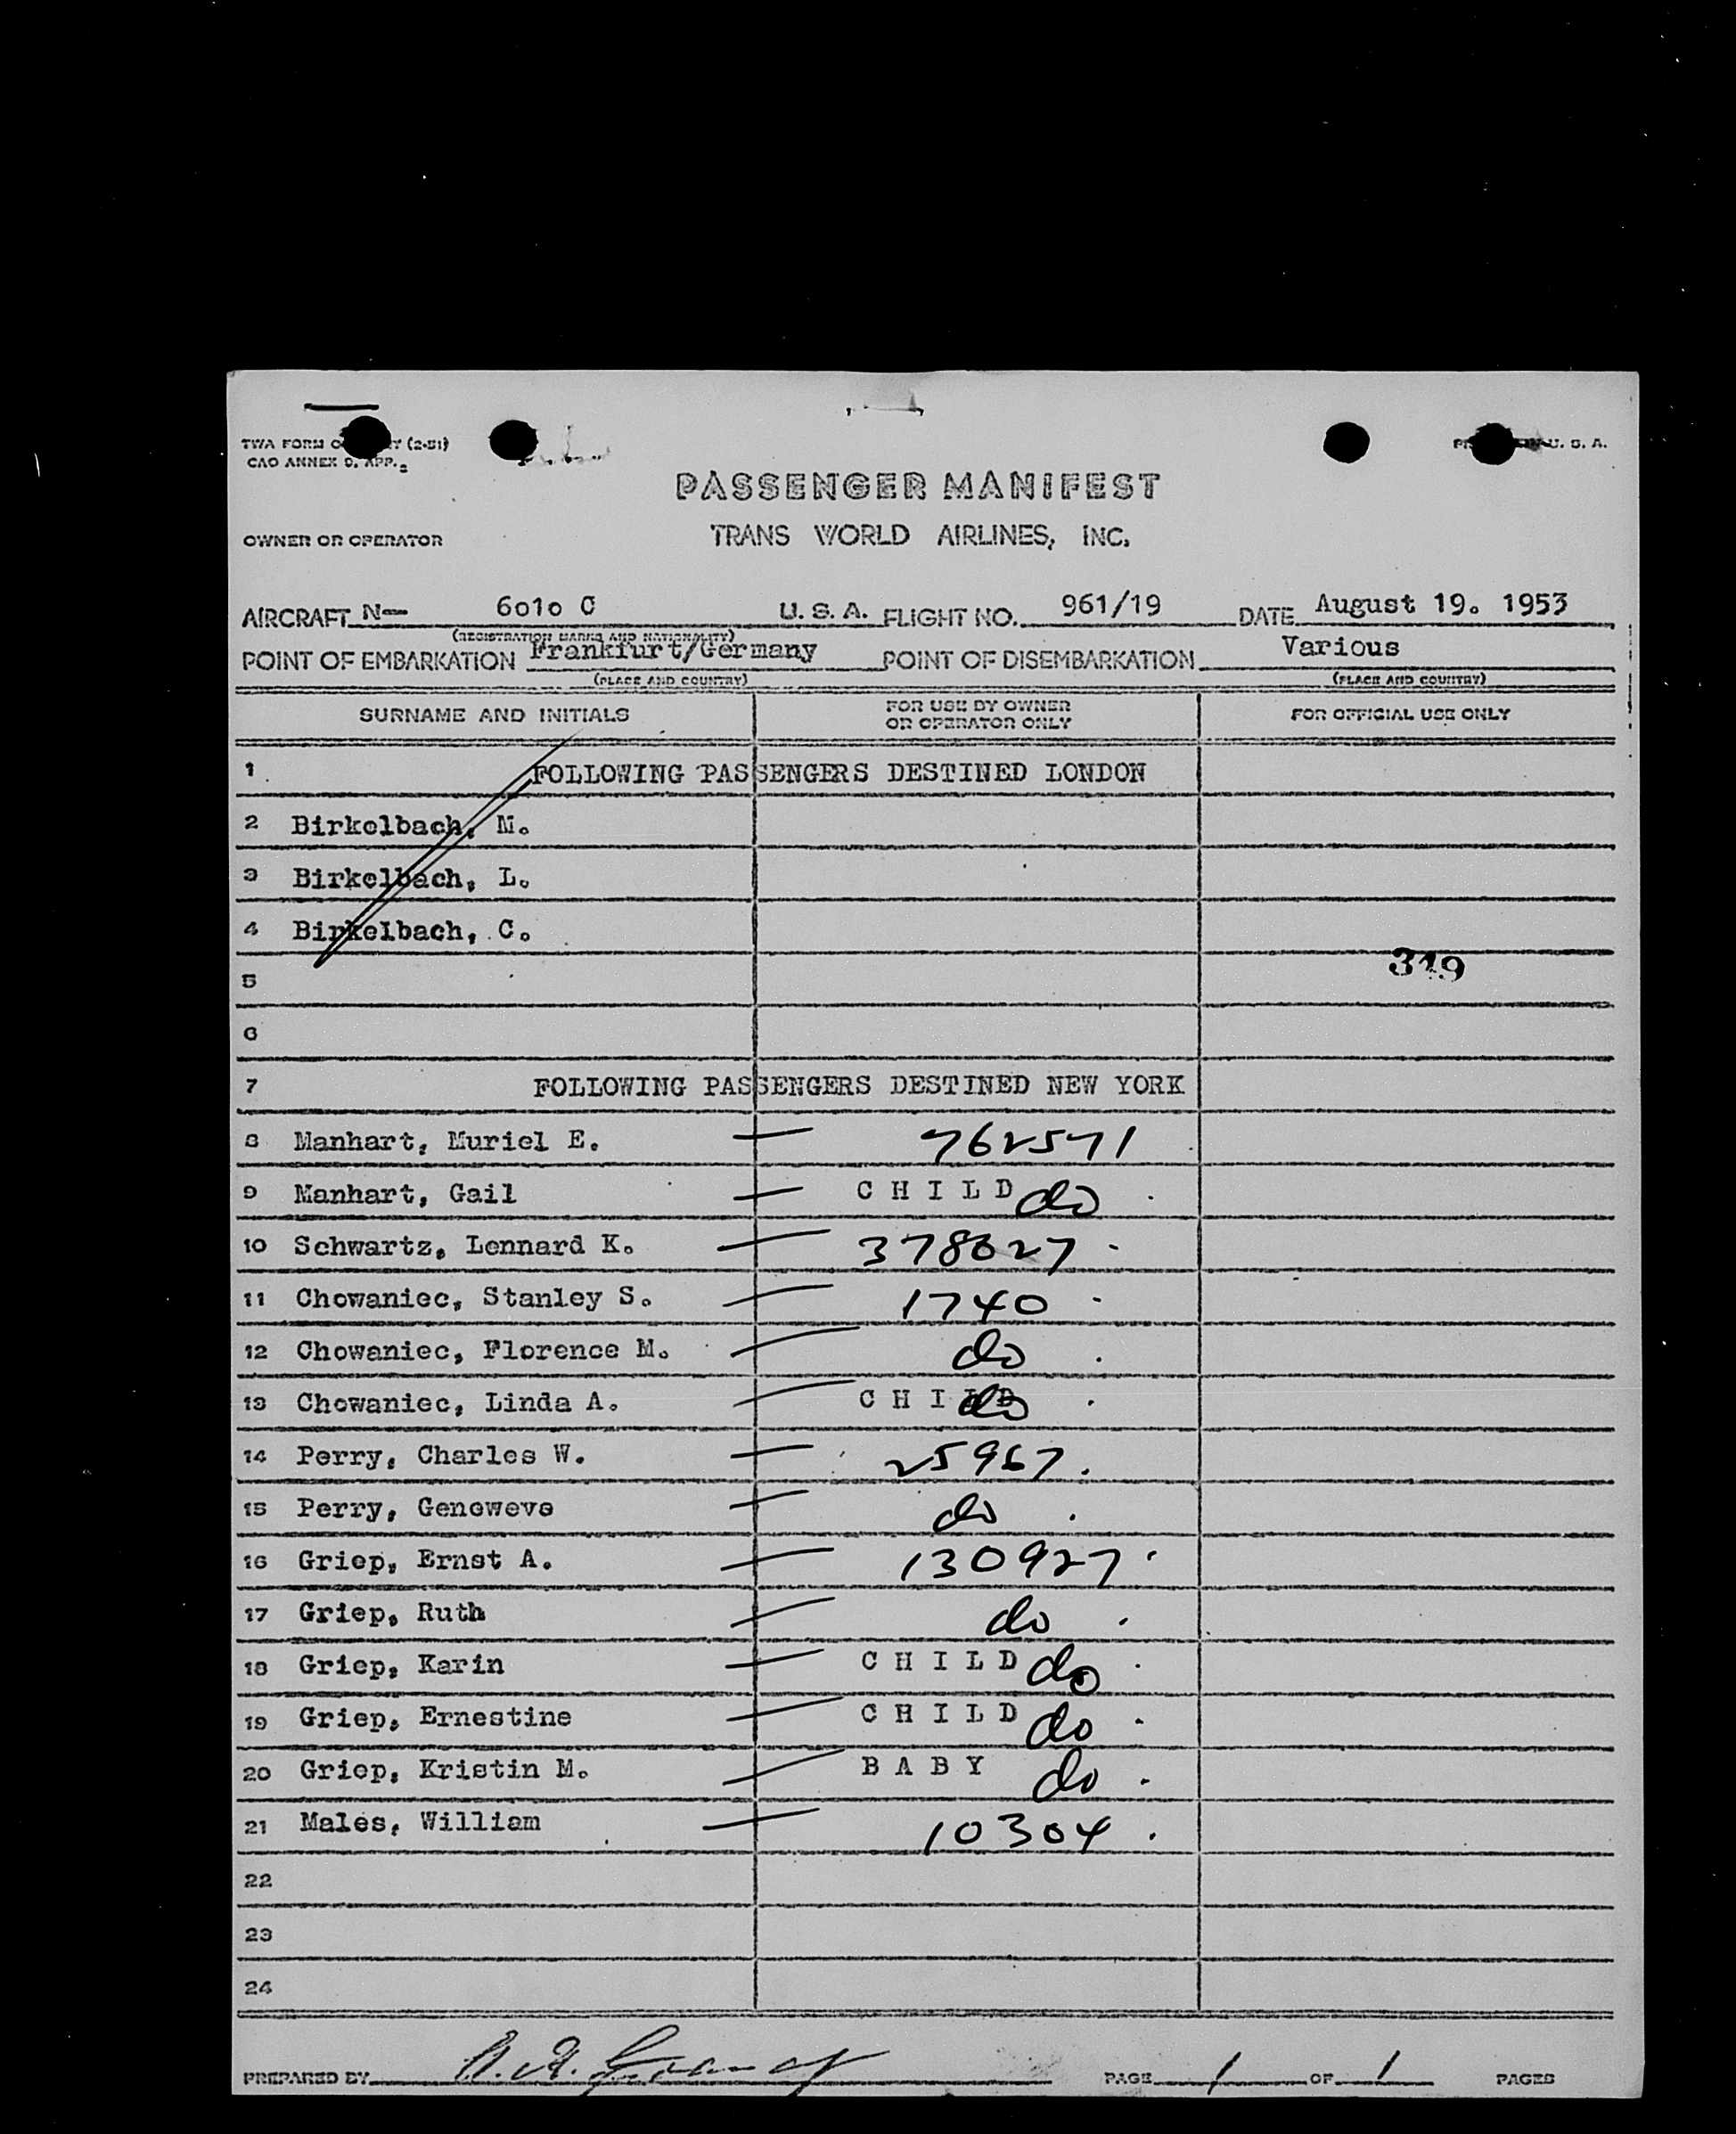 TWA FORM (2-51)
CAO ANNEX 9, APP. 2
U. S. A.
PASSENGER MANIFEST
OWNER OR OPERATOR TRANS WORLD AIRLINES, INC.
AIRCRAFT N— 6010 C U. S. A. FLIGHT NO. 961/19 DATE August 19. 1953
(REGISTRATION MARKS AND NATIONALITY)
POINT OF EMBARKATION Frankfurt/Germany POINT OF DISEMBARKATION Various
(PLACE AND COUNTRY) (PLACE AND COUNTRY)
SURNAME AND INITIALS FOR USE BY OWNER OR OPERATOR ONLY FOR OFFICIAL USE ONLY
1 FOLLOWING PASSENGERS DESTINED LONDON
2 Birkelbach, M.
3 Birkelbach, L.
4 Birkelbach, C.
319
5
6
7 FOLLOWING PASSENGERS DESTINED NEW YORK
8 Manhart, Muriel E. — 762571
9 Manhart, Gail — C H I L D do
10 Schwartz, Lennard K. — 378627
11 Chowaniec, Stanley S. — 1740
12 Chowaniec, Florence M. — do
13 Chowaniec, Linda A. — C H I L D do
14 Perry, Charles W. — 25967
15 Perry, Geneweve — do
16 Griep, Ernst A. — 130927
17 Griep, Ruth — do
18 Griep, Karin — C H I L D do
19 Griep, Ernestine — C H I L D do
20 Griep, Kristin M. — B A B Y do
21 Males, William — 10304
22
23
24
PREPARED BY PAGE 1 OF 1 PAGES